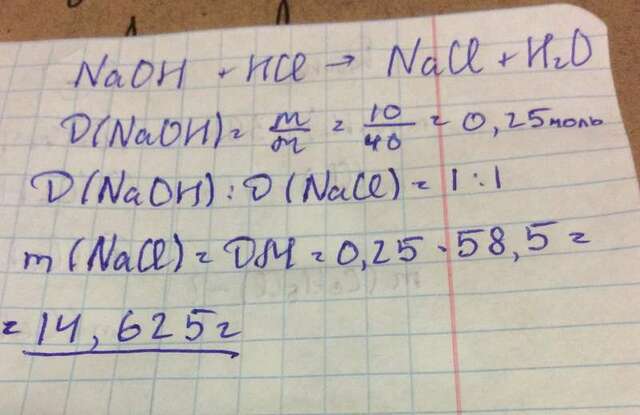 NaOH + HCl → NaCl + H₂O
D(NaOH) = m/M = 10/40 = 0,25 моль
D(NaOH) : D(NaCl) = 1 : 1
m(NaCl) = DM = 0,25 · 58,5 =
= 14,625 г